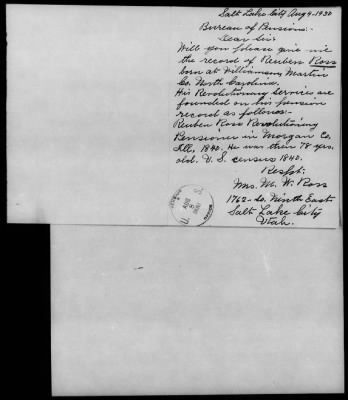 Salt Lake City Aug 4-1930
Bureau of Pensions:-
Dear Sir:-
Will you please give me
the record of Reuben Ross
born at Williamsburg Martin
Co. North Carolina.
His Revolutionary Services are
founded on his pension
record as follows:-
Reuben Ross Revolutionary
Pensioner in Morgan Co.
Ill, 1840. He was then 78 yrs.
old. U. S. census 1840.
Respt.
Mrs. M. W. Ross
1762-So. Ninth East
Salt Lake City
Utah.
AUG
8
1930